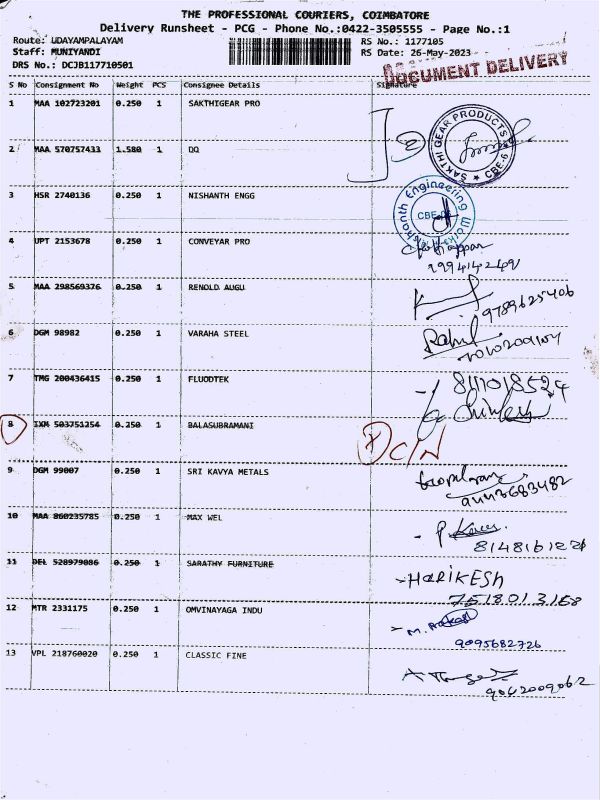 THE PROFESSIONAL COURIERS, COIMBATORE
Delivery Runsheet - PCG - Phone No.:0422-3505555 - Page No.:1
Route: UDAYAMPALAYAM RS No.: 1177105
Staff: MUNIYANDI RS Date: 26-May-2023
DRS No.: DCJB117710501
DOCUMENT DELIVERY
S No Consignment No Weight PCS Consignee Details Signature
1 MAA 102723201 0.250 1 SAKTHIGEAR PRO
SAKTHI GEAR PRODUCTS ★ CBE-6 ★
2 MAA 570757433 1.580 1 DQ
3 HSR 2740136 0.250 1 NISHANTH ENGG
Nishanth Engineering Works
4 UPT 2153678 0.250 1 CONVEYAR PRO
5 MAA 298569376 0.250 1 RENOLD AUGU
9789625406
6 DGM 98982 0.250 1 VARAHA STEEL
Rahul
7 TMG 200436415 0.250 1 FLUODTEK
8111018524
8 IXM 503751254 0.250 1 BALASUBRAMANI
C/N
9 DGM 99007 0.250 1 SRI KAVYA METALS
10 MAA 860235785 0.250 1 MAX WEL
11 DEL 528979086 0.250 1 SARATHY FURNITURE
-HARIKESH
12 MTR 2331175 0.250 1 OMVINAYAGA INDU
9095682726
13 VPL 218760020 0.250 1 CLASSIC FINE
9042009062